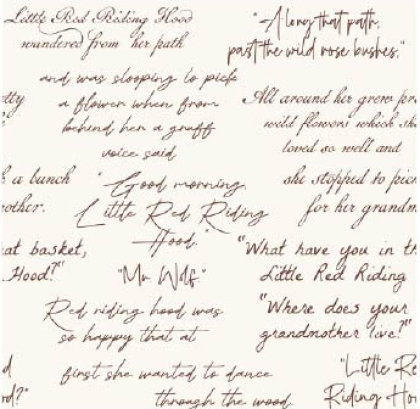 Little Red Riding Hood
wandered from her path
"Along that path,
past the wild rose bushes,"
and was stooping to pick
a flower when from
behind her a gruff
voice said
All around her grew
wild flowers which
loved so well and
a bunch
"Good morning,
Little Red Riding
Hood."
she stopped to
for her
basket,
Hood?"
"What have you in
Little Red Riding
"Mr. Wolf."
"Where does your
grandmother live?"
Red riding hood was
so happy that at
first she wanted to dance
through the wood
"Little
Riding